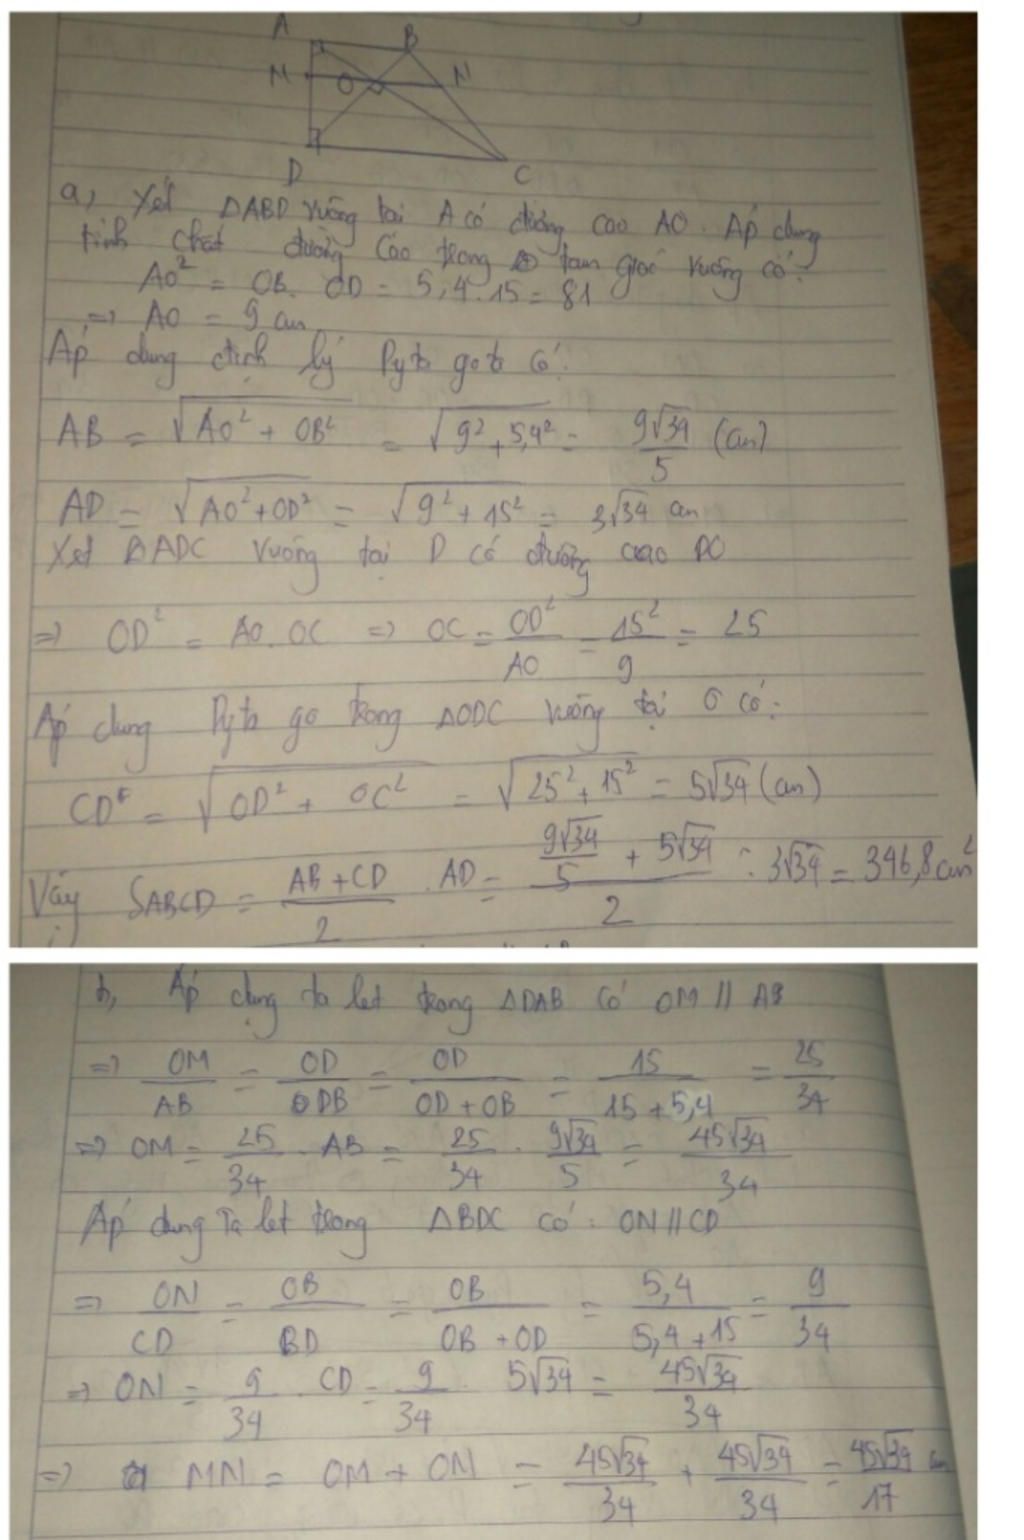 A B
M O N
D C
a, Xét ΔABD vuông tại A có đường cao AO. Áp dụng
tính chất đường cao trong tam giác vuông có:
AO² = OB. OD = 5,4.15 = 81
=> AO = 9 cm
Áp dụng định lý Pytago ta có:
AB = √(AO² + OB²) = √(9² + 5,4²) = 9√34/5 (cm)
AD = √(AO² + OD²) = √(9² + 15²) = 3√34 cm
Xét ΔADC vuông tại D có đường cao DO
=> OD² = AO. OC => OC = OD²/AO = 15²/9 = 25
Áp dụng Pytago trong ΔODC vuông tại O có:
CD = √(OD² + OC²) = √(25² + 15²) = 5√34 (cm)
Vậy SABCD = (AB + CD)/2 . AD = (9√34/5 + 5√34)/2 : 3√34 = 346,8 cm²
b, Áp dụng ta let trong ΔDAB có OM // AB
=> OM/AB = OD/DB = OD/(OD + OB) = 15/(15 + 5,4) = 25/34
=> OM = 25/34 . AB = 25/34 . 9√34/5 = 45√34/34
Áp dụng Ta let trong ΔBDC có: ON // CD
=> ON/CD = OB/BD = OB/(OB + OD) = 5,4/(5,4 + 15) = 9/34
=> ON = 9/34 . CD = 9/34 . 5√34 = 45√34/34
=> MN = OM + ON = 45√34/34 + 45√34/34 = 45√34/17 cm